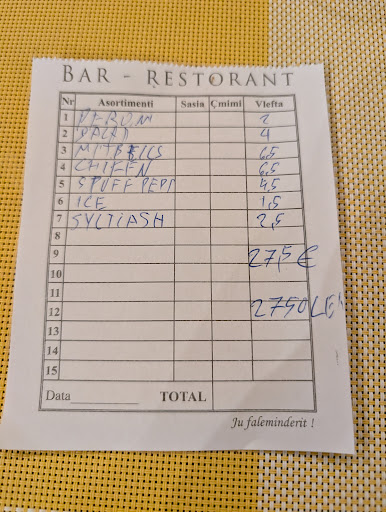 BAR - RESTORANT
Nr Asortimenti Sasia Çmimi Vlefta
1 PERONI 2
2 SALAD 4
3 MITBELLS 6,5
4 CHIKEN 6,5
5 STUFF PEPP 4,5
6 ICE 1,5
7 SYLTIASH 2,5
8
9 27,5 €
10
11
12 2750 LEK
13
14
15
Data__________ TOTAL
Ju faleminderit !